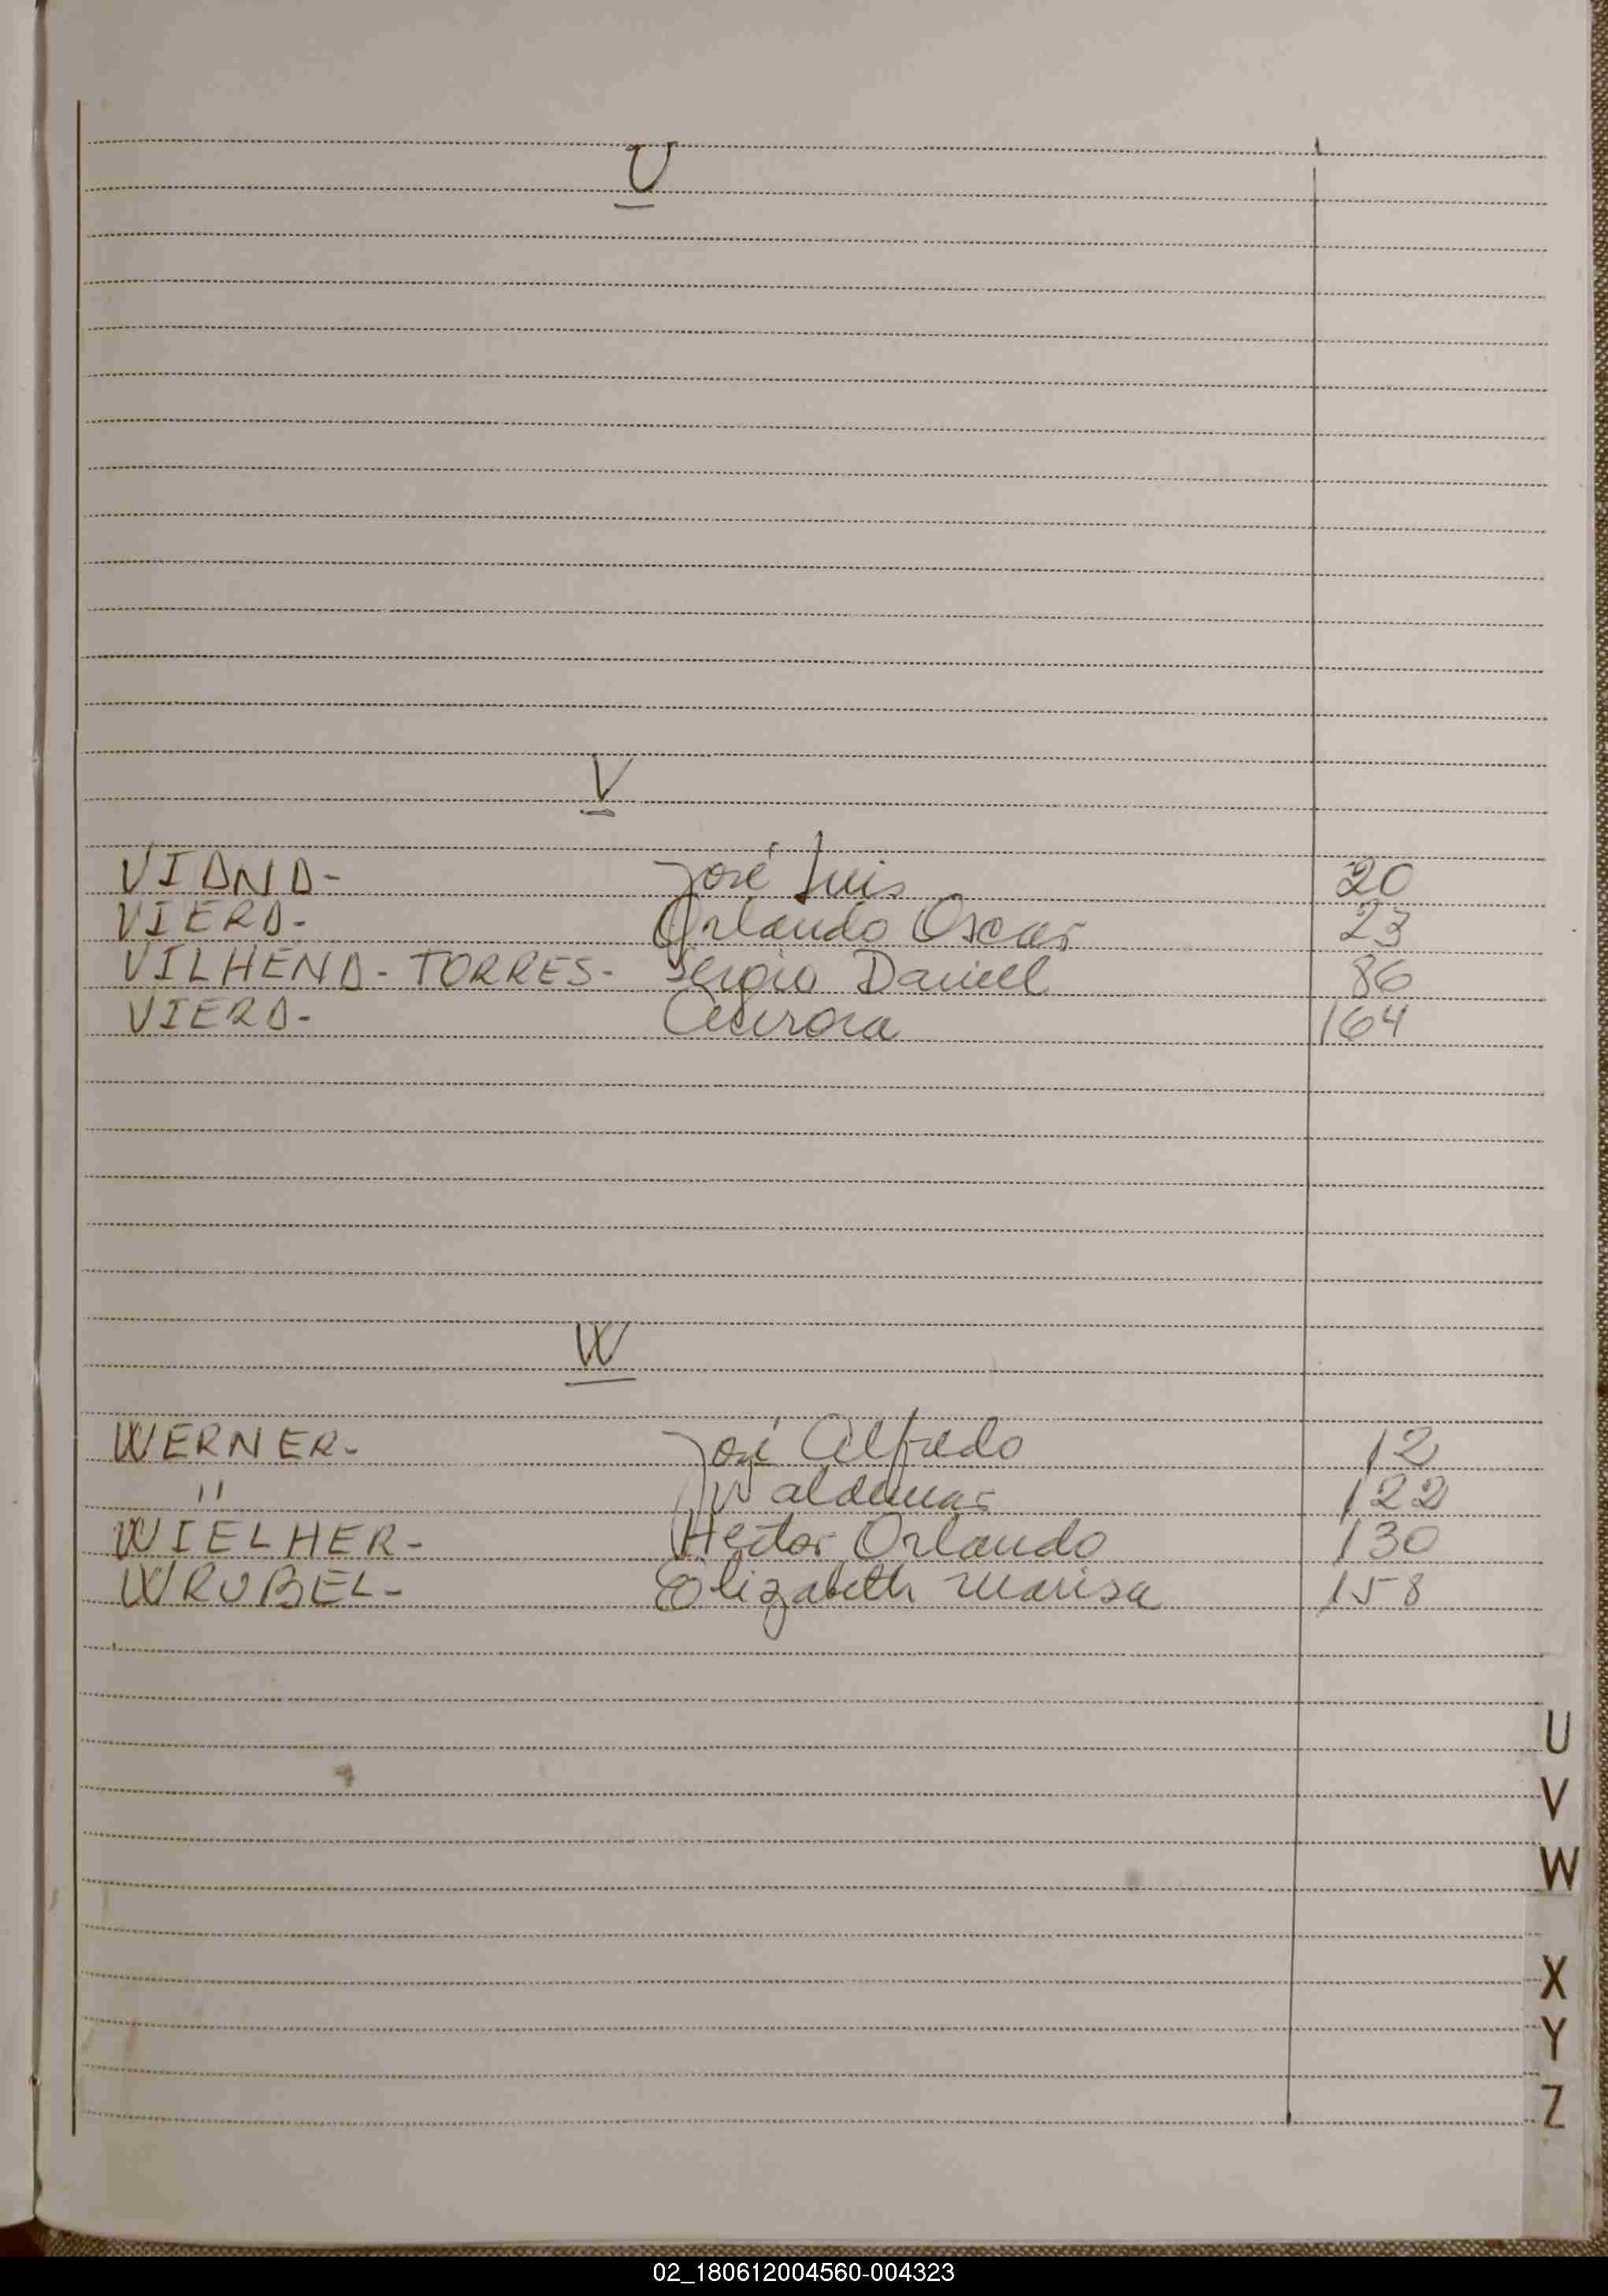 U
V
VIANA- José Luis 20
VIERA- Orlando Oscar 23
VILHENA-TORRES- Sergio Daniel 86
VIERA- Aurora 164
W
WERNER- José Alfredo 12
" Waldemar 122
WIELHER- Hector Orlando 130
WRUBEL- Elizabeth Marisa 158
U
V
W
X
Y
Z
02_180612004560-004323